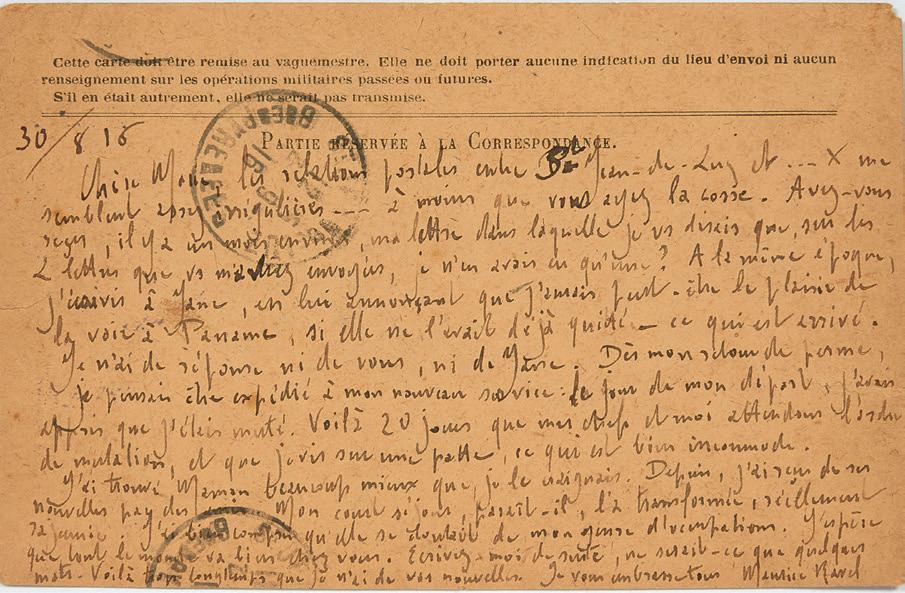 Cette carte doit être remise au vaguemestre. Elle ne doit porter aucune indication du lieu d'envoi ni aucun
renseignement sur les opérations militaires passées ou futures.
S'il en était autrement, elle ne serait pas transmise.
30/8 16
PARTIE RÉSERVÉE À LA CORRESPONDANCE.
les relations postales entre St Jean-de-Luz et --- X me
semblent assez irrégulières --- à moins que vous ayez la cosse. Avez-vous
reçu, il y a un mois environ, ma lettre dans laquelle je vs disais que, sur les
2 lettres que vs m'aviez envoyées, je n'en avais eu qu'une? A la même époque,
j'écrivis à Jane, en lui annonçant que j'aurais peut-être le plaisir de
la voir à Paname, si elle ne l'avait déjà quitté — ce qui est arrivé.
Je n'ai de réponse ni de vous, ni de Jane. Dès mon retour de perme,
je pensais être expédié à mon nouveau service: le jour de mon départ, j'avais
appris que j'étais muté. Voilà 20 jours que mon chef et moi attendons l'ordre
de mutation, et que je vis sur une patte, ce qui est bien incommode.
J'ai trouvé Maman beaucoup mieux que je le craignais. Depuis, j'ai reçu de ses
nouvelles par des Mon court séjour, paraît-il, l'a transformée, réellement
rajeunie. J'ai compris qu'elle se doutait de mon genre d'occupations. J'espère
que tout le monde va bien chez vous. Ecrivez-moi de suite, ne serait-ce que quelques
mots. Voilà bien longtemps que je n'ai de vos nouvelles. Je vous embrasse tous Maurice Ravel